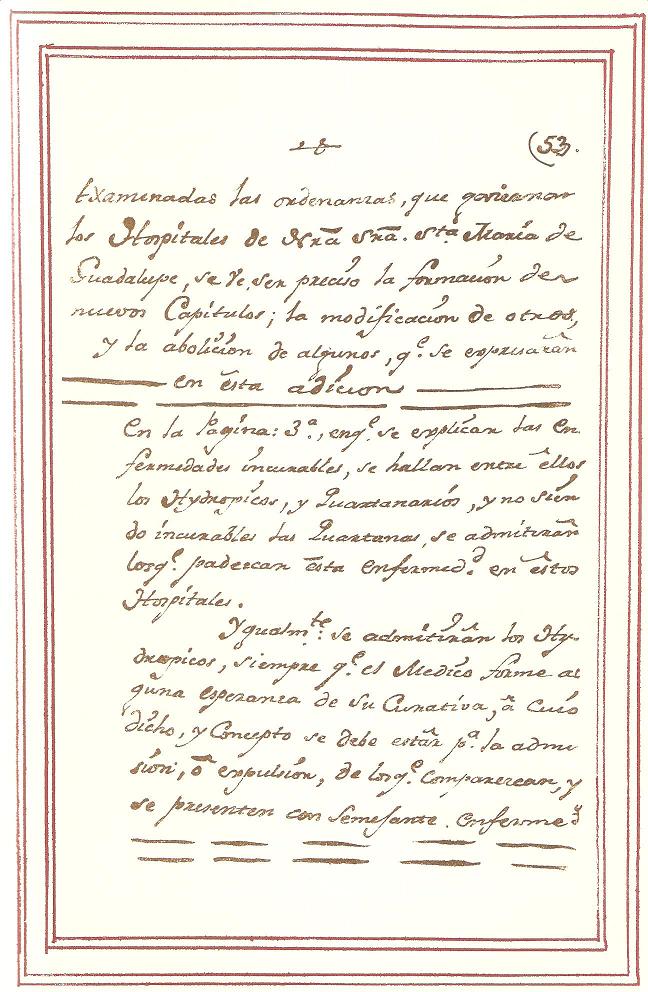 (53.
Examinadas las ordenanzas, que goviernan
los Hospitales de Nrã Srã. Stª. María de
Guadalupe, se ve, ser preciso la formacion de
nuevos Capitulos; la modificacion de otros,
y la abolicion de algunos, q.e se expresarãn
en esta adicion
En la Pagina: 3.ª, enq.e se explican las En
fermedades incurables, se hallan entre ellos
los Hydropicos, y Quartanarios, y no sien
do incurables las Quartanas, se admitirãn
losq.e padezcan esta enfermed.d en estos
Hospitales.
Ygualm.te: se admitirãn los Hy-
dropicos, siempre q.e el Medico forme al
guna esperanza de su Curativa, ã cuio
dicho, y Concepto se debe estãr p.ª la admi
sion, õ expulsion, de losq.e comparezcan, y
se presenten con semejante. enferme.d